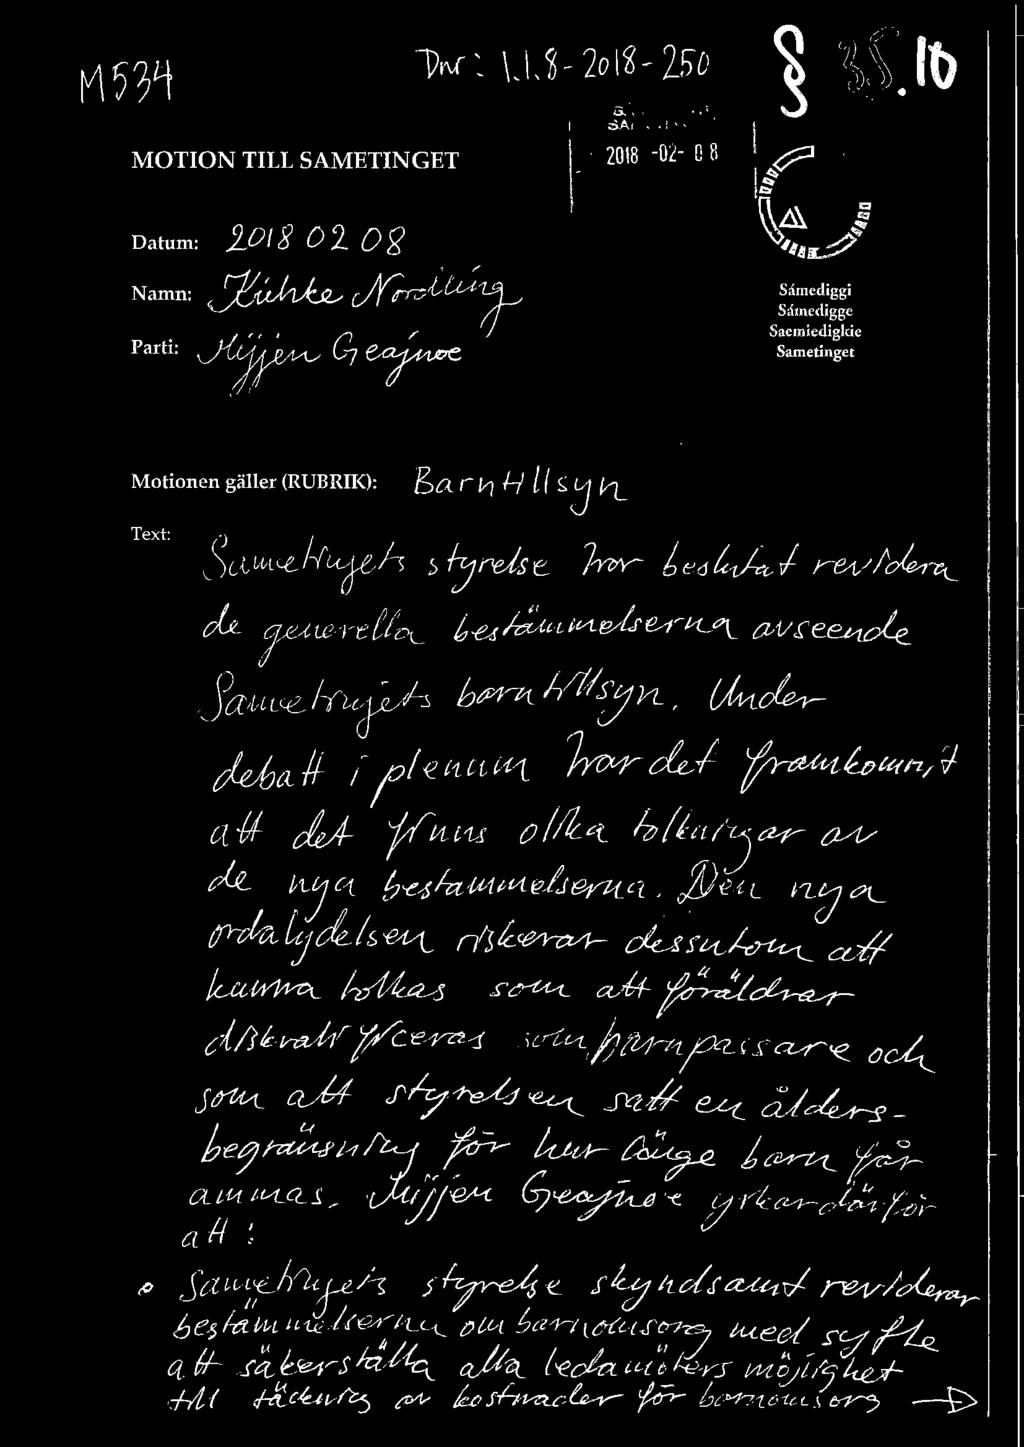 M534
Dnr: 1.1.8-2018-250
§ 35.10
MOTION TILL SAMETINGET
2018 -02- 08
Datum: 2018 02 08
Namn: Nordling
Parti: Mijjen Geajnoe
Sámediggi
Sámedigge
Saemiedigkie
Sametinget
Motionen gäller (RUBRIK): Barntillsyn
Text:
Sametingets styrelse har beslutat revidera
de generella bestämmelserna avseende
Sametingets barntillsyn. Under
debatt i plenum har det framkommit
att det finns olika tolkningar av
de nya bestämmelserna. Den nya
ordalydelsen riskerar dessutom att
kunna tolkas som att föräldrar
diskvalificeras som barnpassare och
som att styrelsen satt en ålders-
begränsning för hur länge barn får
ammas. Mijjen Geajnoe yrkar därför
att:
• Sametingets styrelse skyndsamt reviderar
bestämmelserna om barnomsorg med syfte
att säkerställa alla ledamöters möjlighet
till täckning av kostnader för barnomsorg →